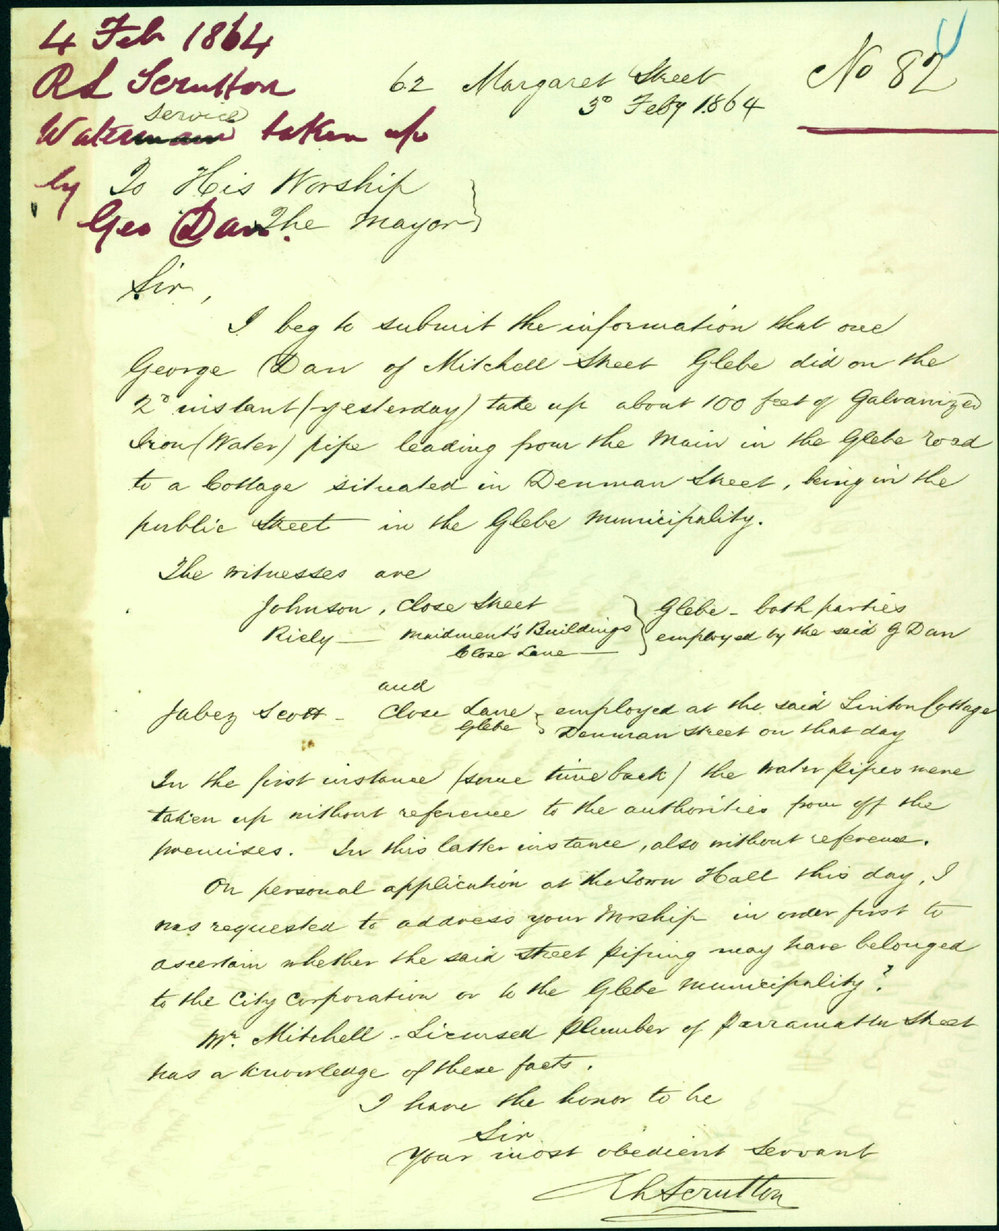 4 Feb 1864
R L Scrutton
service
Watermain taken up
by
Geo Dan.
No 82
62 Margaret Street
3d Feby 1864
To His Worship
The Mayor
Sir,
I beg to submit the information that one
George Dan of Mitchell Street Glebe did on the
2d instant (yesterday) take up about 100 feet of Galvanized
Iron (Water) pipe leading from the Main in the Glebe road
to a Cottage situated in Denman Street, being in the
public Street in the Glebe Municipality.
The witnesses are
Johnson, Close Street
Riely — Maidment's Buildings
Close Lane —
Glebe - both parties
employed by the said G Dan
and
Jabez Scott - Close Lane
Glebe
employed at the said Linton Cottage
Denman Street on that day
In the first instance (some time back) the Water pipes were
taken up without reference to the authorities from off the
premises. In this latter instance, also without reference.
On personal application at the Town Hall this day, I
was requested to address your Worship in order first to
ascertain whether the said street piping may have belonged
to the City Corporation or to the Glebe Municipality?
Mr. Mitchell - Licensed Plumber of Parramatta Street
has a knowledge of these facts.
I have the honor to be
Sir
Your most obedient servant
Scrutton